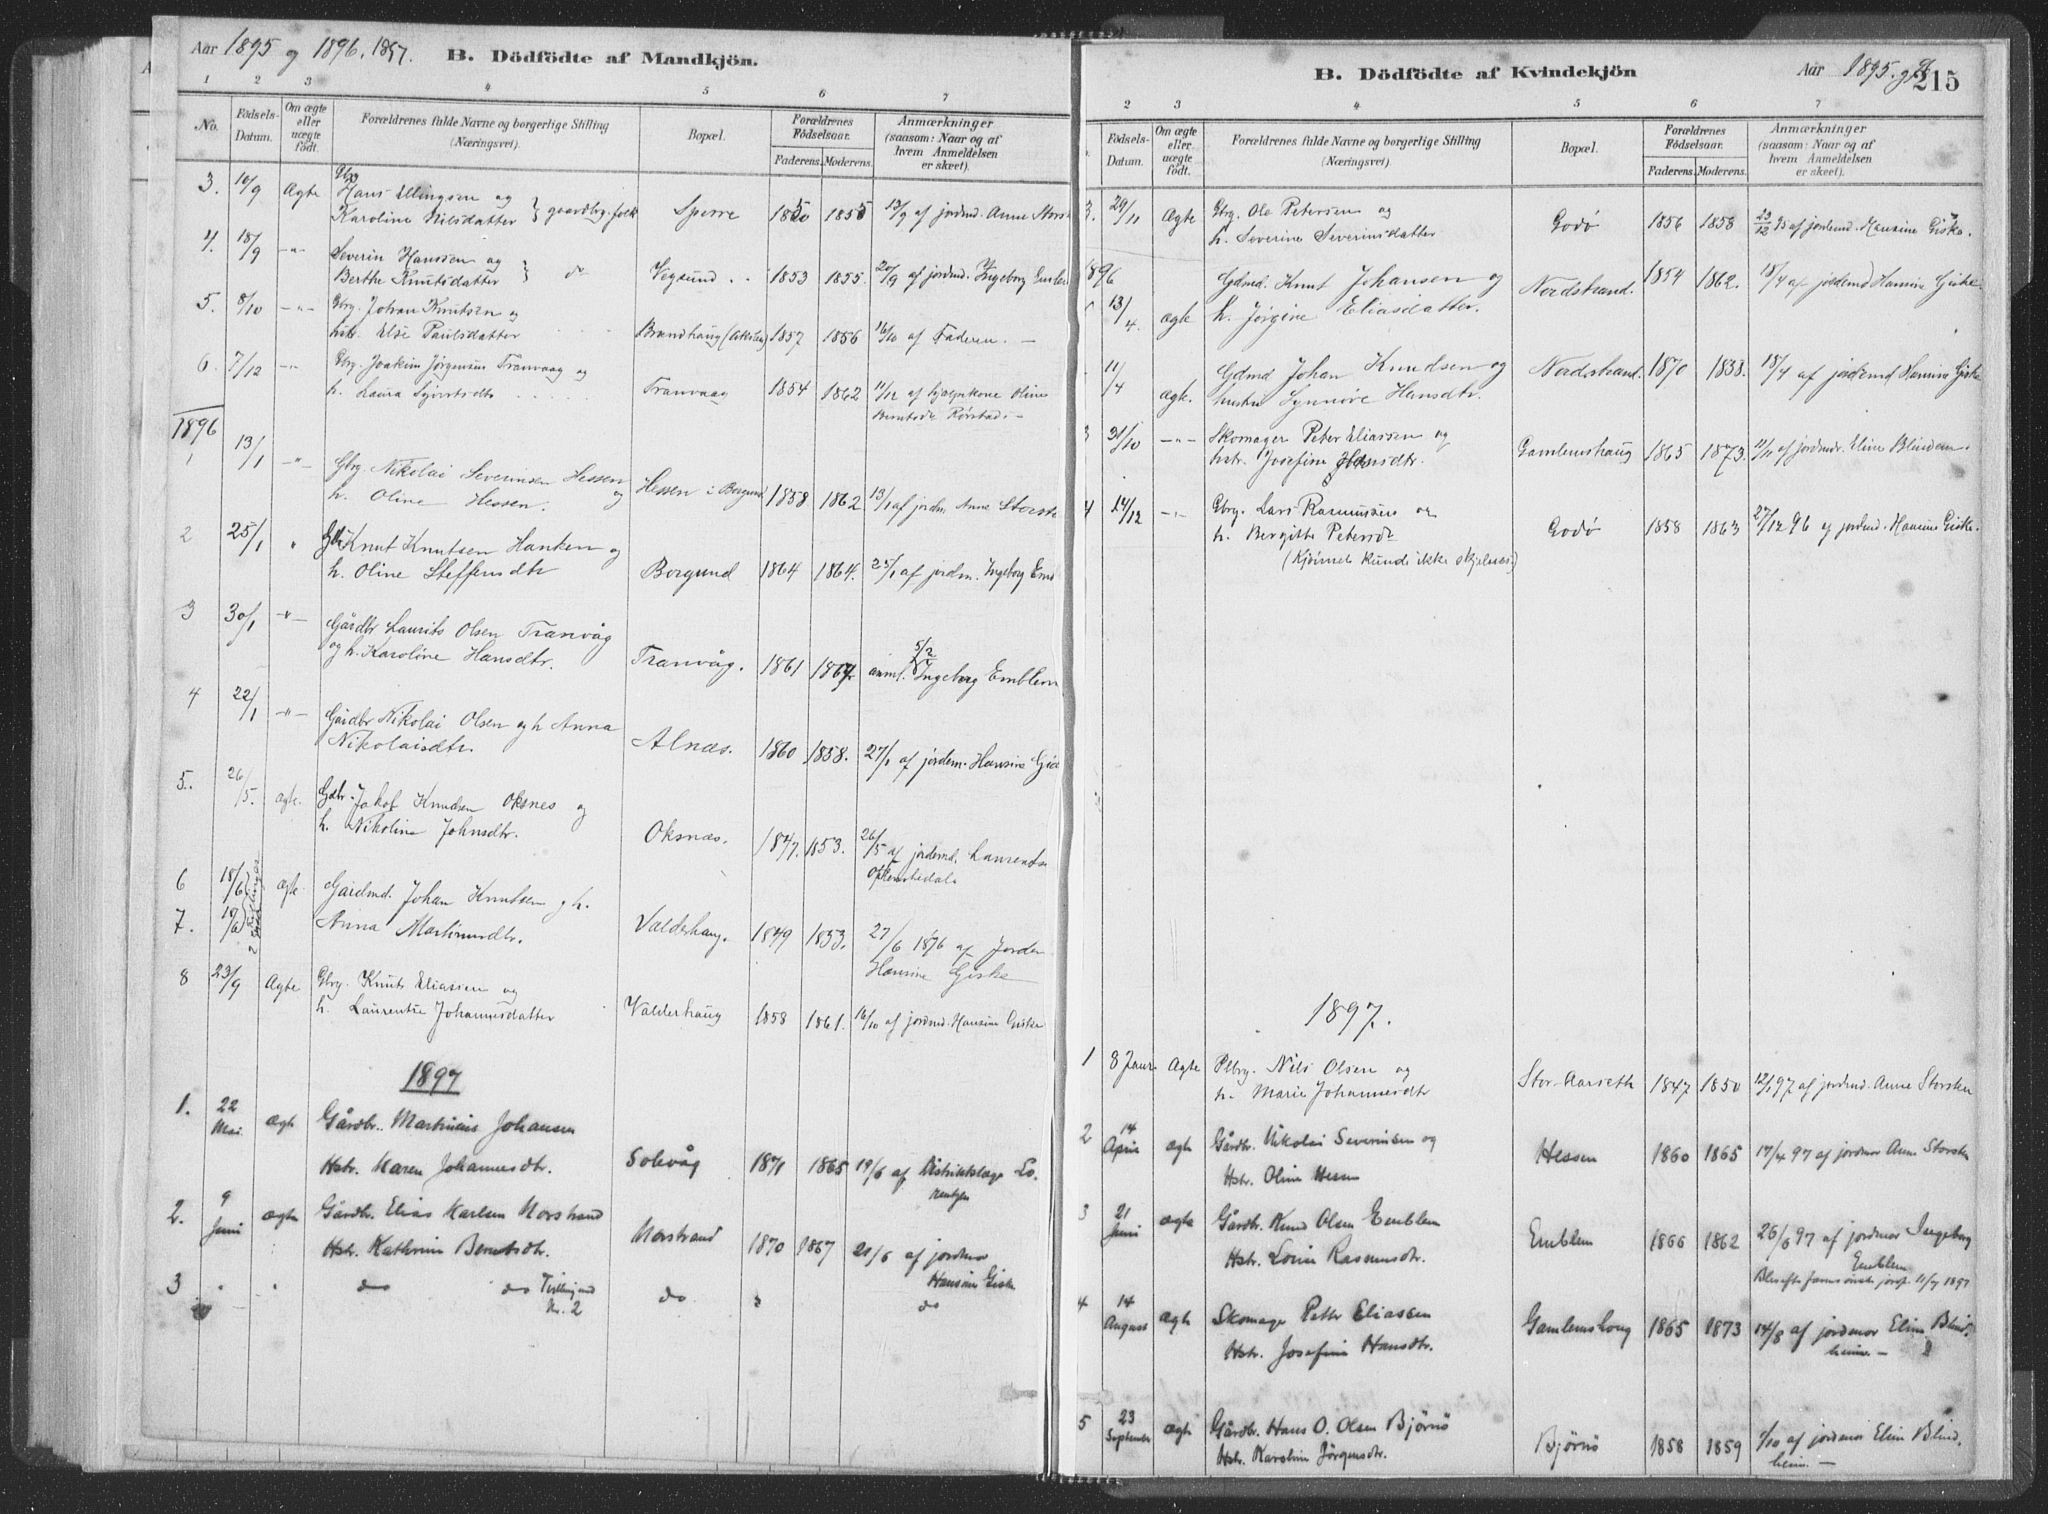 Aar 1895 og 1896. 1897. B. Dödfödte af Mandkjön.
1 2 3 4 5 6 7
No. Födsels-Datum. Om ægte eller uægte födt. Forældrenes fulde Navne og borgerlige Stilling (Næringsvei). Bopæl. Forældrenes Födselsaar. Faderens. Moderens. Anmærkninger (saasom: Naar og af hvem Anmeldelsen er skeet).
3. 10/9 Ægte Gbr. Hans Ellingsen og
Karoline Nilsdatter } gaardbr.folk Sperre 1850 1855 13/9 af jordmd. Anne Storsk
4. 18/9 -"- Severin Hanssen og
Berthe Knutsdatter } do Vegsund 1853 1855. 20/9 af jordmd. Ingeborg Embl
5. 8/10 -"- Gbrg. Johan Knutsen og
hstr. Else Paulsdatter Brandhaug 1857 1856 16/10 af Faderen. —
6. 7/12 -"- Gbrg. Joakim Jørgensen Tranvaag og
h. Laura Sjurtsdtr Tranvaag 1854 1862 11/12 af Hjælpekone Oline
Berntsdtr Rørstad. —
1896
1 13/1 -"- Gbrg. Nikolai Severinsen Hessen og
h. Oline Hessen. Hessen i Borgund 1858 1862. 13/1 af jordm. Anne Storsk
2 25/1 " Gbr Knut Knutsen Hanken og
h. Oline Steffensdtr Borgund 1864 1864. 25/1 af jordm. Ingeborg Em
3 30/1 -"- Gårdbr Laurits Olsen Tranvåg
og h. Karoline Hansdtr. Tranvåg. 1861 1864 anml. 5/2 Ingeborg Emblem
4 22/1 -"- Gårdbr Nikolai Olsen og h Anna
Nikolaisdtr. Alnæs. 1860 1858. 27/1 af jordem. Hansine Gisk
5. 26/5. ægte. Gdbr. Jakob Knudsen Oksnes og
h. Nikoline Johnsdtr. Oksnæs. 1847. 1853. 26/5 af jordemd. Laurentse
6 18/6 ægte Gaardmd. Johan Knutsen og h.
7. 19/6 2 Tvillinger Anna Martinusdtr. Valderhaug. 1849 1853. 27/6 1896 af Jordem
Hansine Giske
8 23/9 Ægte Gbrg. Knut Eliassen og
h. Laurentse Johannesdatter Valderhaug 1858 1861. 16/10 af jordmd. Hansine Giske
1897
1. 22 Mai. ægte Gårdbr. Martinius Johansen
Hstr. Maren Johannesdtr. Solevåg 1871 1865 19/6 af Distriktslæge Lo-
rentzen
2. 9 Juni ægte Gårdbr. Elias Karlsen Norstrand
Hstr. Kathrine Berntsdtr. Norstrand 1870 1867 21/6 af jordmor
Hansine Giske
3 " " do do Tvilling med
Nr. 2 do " do
B. Dödfödte af Kvindekjön Aar 1895. og 215
2 3 4 5 6 7
Födsels-Datum. Om ægte eller uægte födt. Forældrenes fulde Navne og borgerlige Stilling (Næringsvei). Bopæl. Forældrenes Födselsaar. Faderens. Moderens. Anmærkninger (saasom: Naar og af hvem Anmeldelsen er skeet).
3. 29/11 Ægte Gbrg. Ole Petersen og
h. Severine Severinsdatter Godø 1856 1858 23/12 95 af jordemd. Hansine Giske.
1896
13/4. ægte Gdmd. Knut Johansen og
h. Jørgine Eliasdatter. Nordstrand. 1854 1862. 18/4 af jordemd Hansine Giske
11/4 ægte. Gdmd Johan Knudsen og
hustru Synnøve Hansdtr. Nordstrand. 1870 1838. 18/4 af jordemd Hansine Giske
3 31/10 -"- Skomager Peter Eliassen og
hstr. Josefine Hansdtr. Gamlemshaug 1865 1873. 11/11 af jordmdr. Eline Blindem.
4 14/12 -"- Gbrg. Lars Rasmussen og
h. Bergitte Petersdtr Godø 1858 1863 27/12 96 af jordmd. Hansine Giske.
(Kjønnet kunde ikke skjelnes.)
1897.
1 8 Janr Ægte Plbrg. Nils Olsen og
h. Marie Johannesdtr Stor-Aarseth 1847 1850 12/1 97 af jordmd. Anne Storsken
2 14 April ægte Gårdbr. Nikolai Severinsen og
Hstr. Oline Hessen Hessen 1860 1865 17/4 97 af jordmor Anne Storsken
3 21 Juni ægte Gårdbr. Knud Olsen Emblem
Hstr. Lovise Rasmusdtr. Emblem 1866 1862 26/6 97 af jordmor Ingeborg
Emblem
4 14 August ægte Skomager Petter Eliassen
Hstr. Josefine Hansdtr. Gamlemshoug 1865 1873 14/8 af jordmor Eline Blind-
heim. —
5 23 September ægte Gårdbr. Hans O. Olsen Bjørnø
Hstr. Karoline Jörgensdtr. Bjørnø 1858 1859 1/10 af jordmor Eline Blind-
heim. —